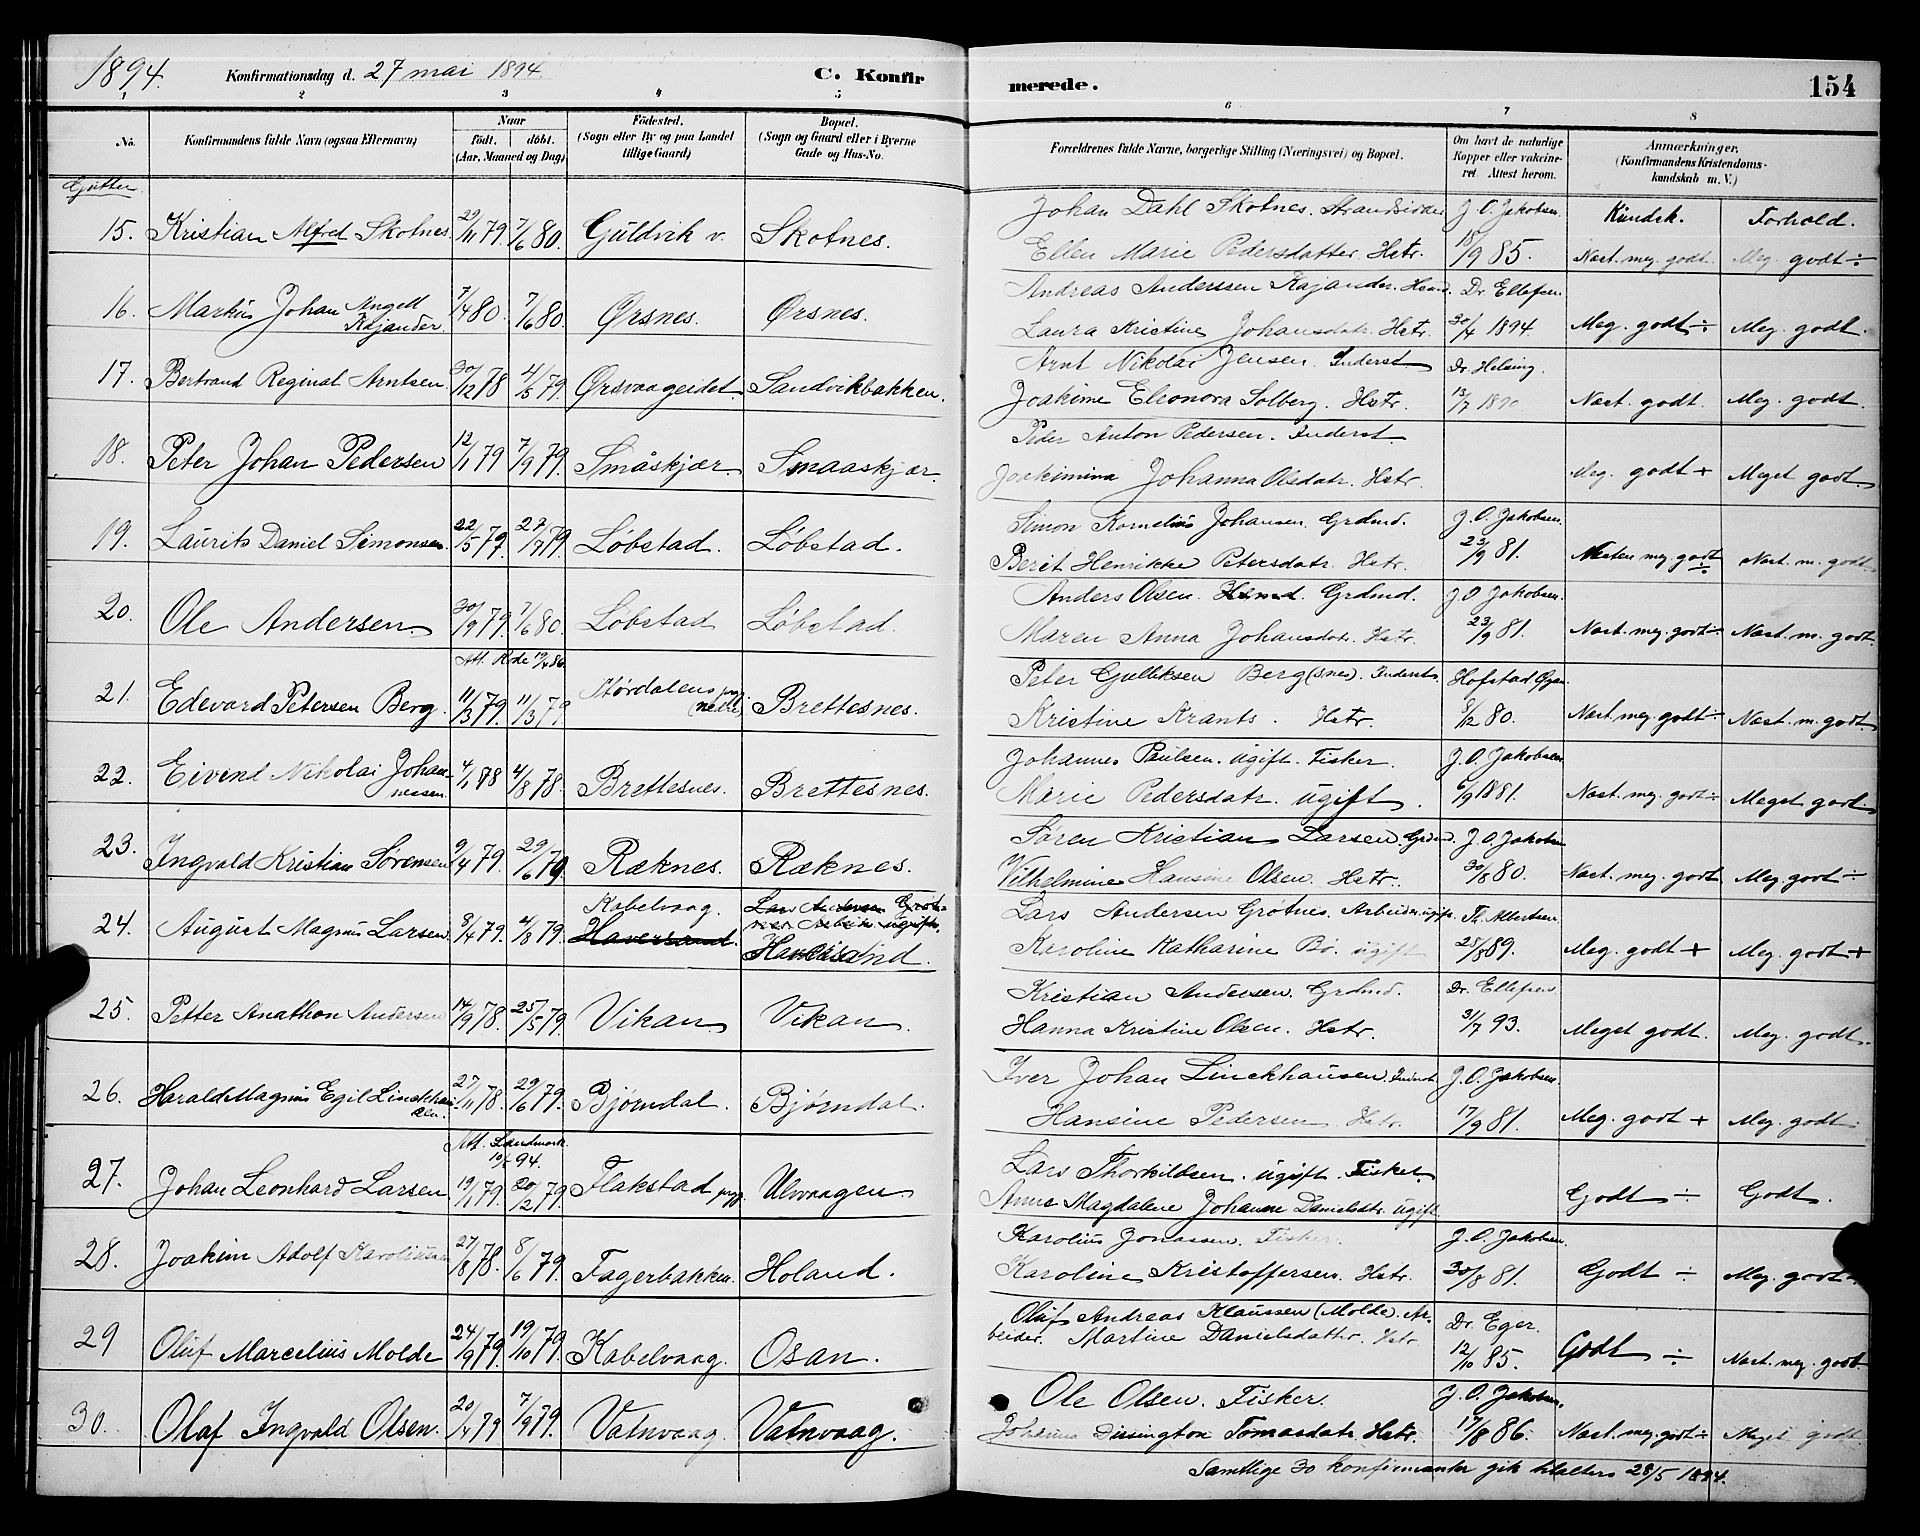 1894.
Konfirmationsdag d. 27 mai 1894.
C. Konfirmerede.
154
1 2 3 4 5 6 7 8
No.
Konfirmandens fulde Navn (ogsaa Efternavn)
Naar
født. døbt.
(Aar, Maaned og Dag)
Fødested.
(Sogn eller By og paa Landet
tillige Gaard)
Bopæl.
(Sogn og Gaard eller i Byerne
Gade og Hus-No.
Forældrenes fulde Navne, borgerlige Stilling (Næringsvei) og Bopæl.
Om havt de naturlige
Kopper eller vakcine-
ret. Attest herom.
Anmærkninger.
(Konfirmandens Kristendoms-
kundskab m. V.)
Gutter.
Kundsk. Forhold.
15. Kristian Alfred Skotnes. 29/11 79. 7/6 80. Guldvik v. Skotnes.
Johan Dahl Skotnes. Strandsidder J. O. Jakobsen
Ellen Marie Pedersdatter. Hstr. 18/9 85. Næst. meg. godt. Meg. godt ÷
16. Markus Johan Angell
Kajander. 7/4 80. 7/6 80. Ørsnes. Ørsnes.
Andreas Anderssen Kajander. Hsmd. Dr. Ellefsen.
Laura Kristine Johansdatr. Hstr. 30/4 1894. Meg. godt ÷ Meg. godt.
17. Bertrand Reginat Arntsen. 30/12 78 4/5 79. Ørsvaageidet Sandvikbakken.
Arnt Nikolai Jensen. Inderst Dr. Helsing.
Joakime Eleonora Solberg. Hstr. 13/7 1890 Næst. godt. Meg. godt.
18. Peter Johan Pedersen 12/1 79 7/9 79. Småskjær. Smaaskjær.
Peder Anton Pedersen. Inderst.
Joakimina Johanna Olsdatr. Hstr. Meg. godt + Meget godt.
19. Laurits Daniel Simonsen. 22/5 79. 27/7 79. Løbstad. Løbstad.
Simon Kornelius Johansen. Grdmd. J. O. Jakobsen.
Berit Henrikke Petersdatr. Hstr. 23/9 81. Næsten meg. godt ÷ Næst. m. godt.
20. Ole Andersen. 30/9 79. 1/6 80. Løbstad Løbstad.
Anders Olsen. Hsmd. Grdmd. J. O. Jakobsen.
Maren Anna Johansdatr. Hstr. 23/9 81. Næst. meg. godt ÷ Næst. m. godt
Att. Rode 19/4 86.
21. Edevard Petersen Berg. 11/3 79. 11/3 79 Størdalens pgj. (nedre) Brettesnes.
Peter Gulliksen Berg (snes). Inderst. Hofstad
Kristine Krants. Hstr. 8/12 80. Næst. meg. godt ÷ Næst. m. godt.
22. Eivind Nikolai Johan-
nessen. 4/1 78 4/8 78. Brettesnes. Brettesnes.
Johannes Paulsen. ugift. Fisker. J. O. Jakobsen
Marie Pedersdatr. ugift. 6/9 1881. Næst. meg. godt ÷ Meget godt.
23. Ingvald Kristian Sørensen 9/4 79. 29/6 79. Ræknes. Ræknes.
Søren Kristian Larsen. Grdmd. J. O. Jakobsen
Vilhelmine Hansine Olsen. Hstr. 30/8 80. Næst. meg. godt Meg. godt ÷
24. August Magnus Larsen. 8/4 79. 4/8 79. Kabelvaag. Haversand. Haversand.
Lars Andersen Grøtnes. Arbeider. ugift. Th. Albertsen.
Karoline Katharine Bø. ugift 25/8 89. Meg. godt + Meg. godt +
25. Petter Anathon Andersen 14/9 78. 25/5 79. Vikan. Vikan.
Kristian Andersen. Grdmd. Dr. Ellefsen
Hanna Kristine Olsen. Hstr. 31/7 93. Meget godt. Meg. godt.
26. Harald Magnus Egil Linckhau-
sen. 27/11 78. 29/6 79. Bjørndal. Bjørndal.
Iver Johan Linckhausen. Inderst. J. O. Jakobsen.
Hansine Pedersen Hstr. 17/9 81. Meg. godt + Meg. godt.
Att. Landmark
10/5 94.
27. Johan Leonhard Larsen 19/1 79. 20/2 79. Flakstad pgj. Ulvaagen
Lars Thorkildsen. ugift. Fisker.
Anne Magdalene Johanne Danielsdtr. ugift. Godt ÷ Godt.
28. Joakim Adolf Karoliussen 27/8 78. 8/6 79. Fagerbakken. Holand.
Karolius Jonassen. Fisker. J. O. Jakobsen.
Karoline Kristoffersen. Hstr. 30/8 81. Godt ÷ Meg. godt.
29 Oluf Marcelius Molde 24/9 79. 19/10 79. Kabelvaag. Osan.
Oluf Andreas Klaussen (Molde). Ar-
beider. Martine Danielsdatter. Hstr. Dr. Eger.
12/10 85. Godt ÷ Næst. meg. godt.
30. Olaf Ingvald Olsen. 20/4 79 7/9 79. Vatnvaag. Vatnvaag.
Ole Olsen. Fisker. J. O. Jakobsen.
Johanna Tomasdatr. Hstr. 17/8 86. Næst. meg. godt ÷ Meget godt.
Samtlige 30 konfirmanter gik tilalters 28/5 1894.